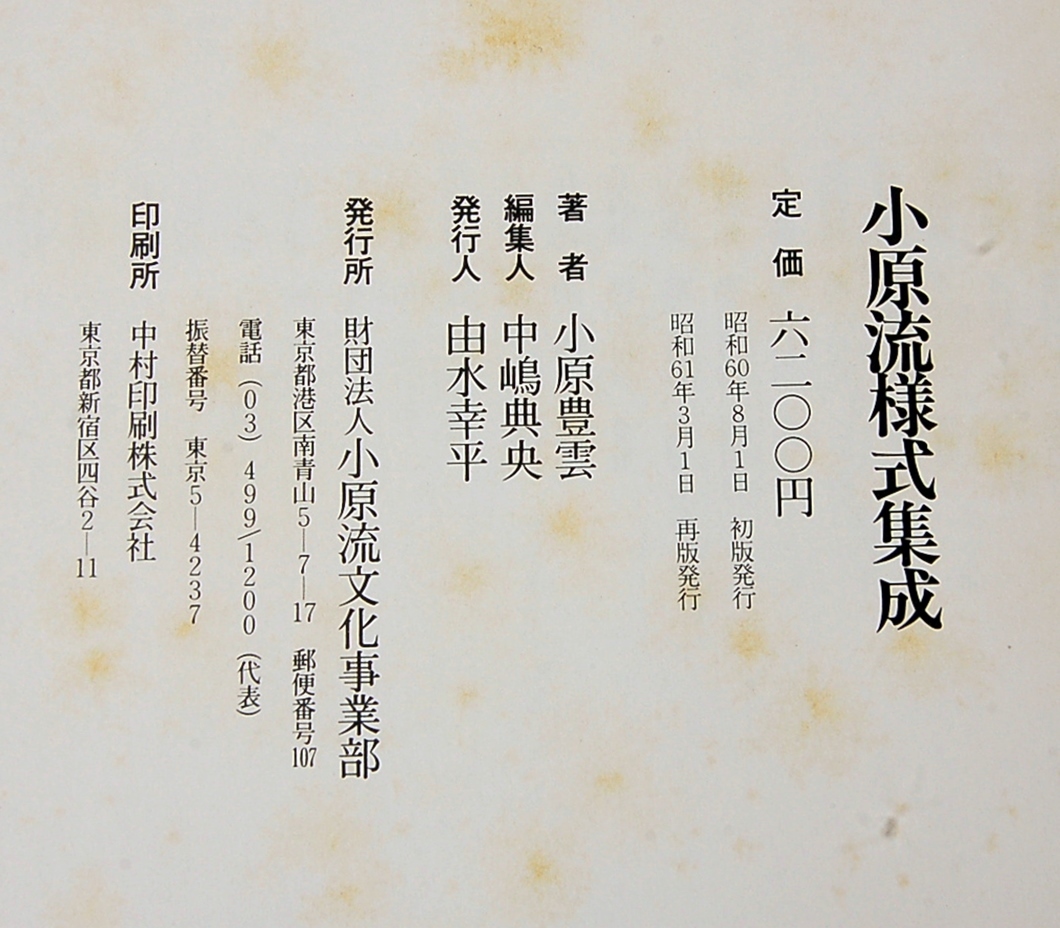 小原流様式集成
定価 六二〇〇円
昭和60年8月1日 初版発行
昭和61年3月1日 再版発行
著者 小原豊雲
編集人 中嶋典央
発行人 由水幸平
発行所 財団法人小原流文化事業部
東京都港区南青山5—7—17 郵便番号107
電話(03)499/1200(代表)
振替番号 東京5—4237
印刷所 中村印刷株式会社
東京都新宿区四谷2—11